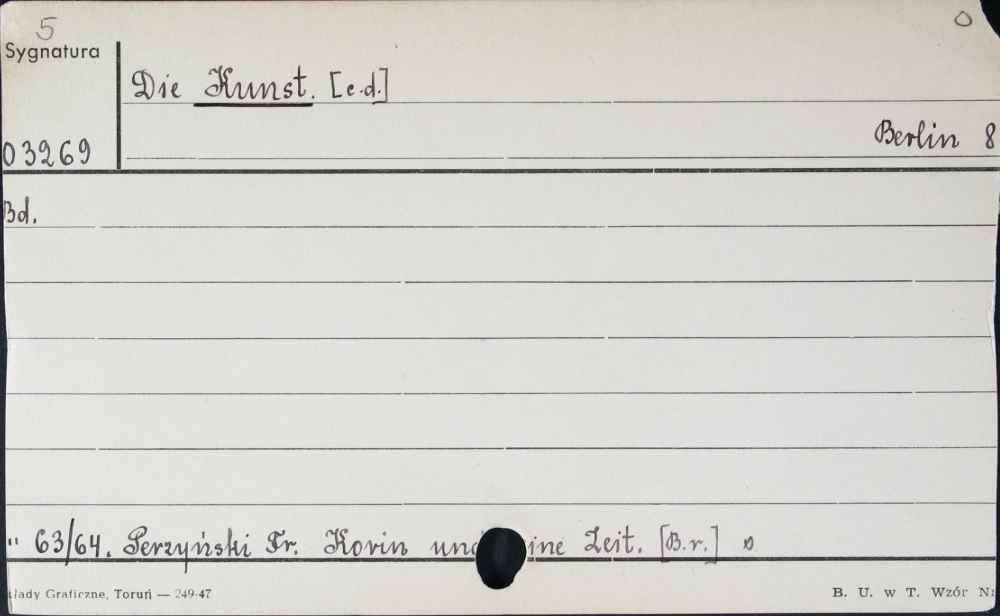 5
O
Sygnatura
Die Kunst. [e.d.]
Berlin 8
03269
Bd.
" 63/64. Perzyński Fr. Korin und ine Zeit. [B.r.]
łady Graficzne, Toruń — 249-47
B. U. w T. Wzór